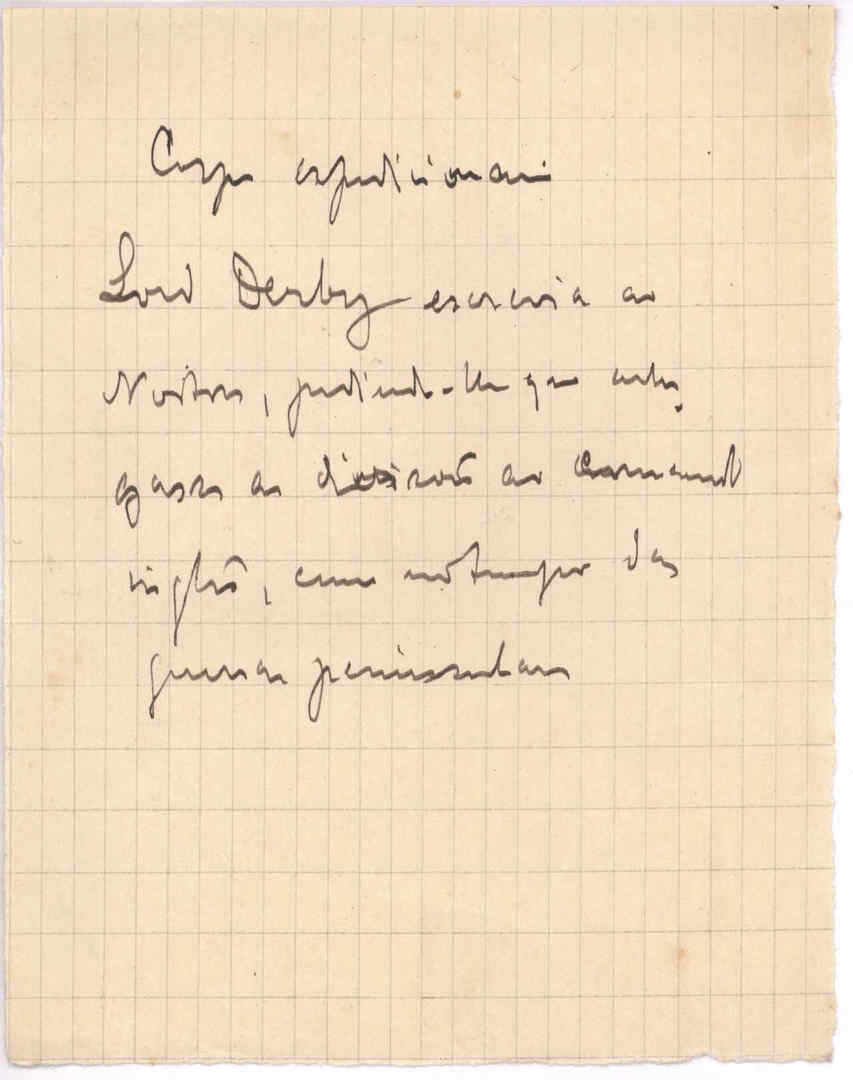 Corpo expedicionario
Lord Derby escrevia ao
Norton, pedindo-lhe que entre-
gasse as divisões ao comando
inglês, como no tempo das
guerras peninsulares